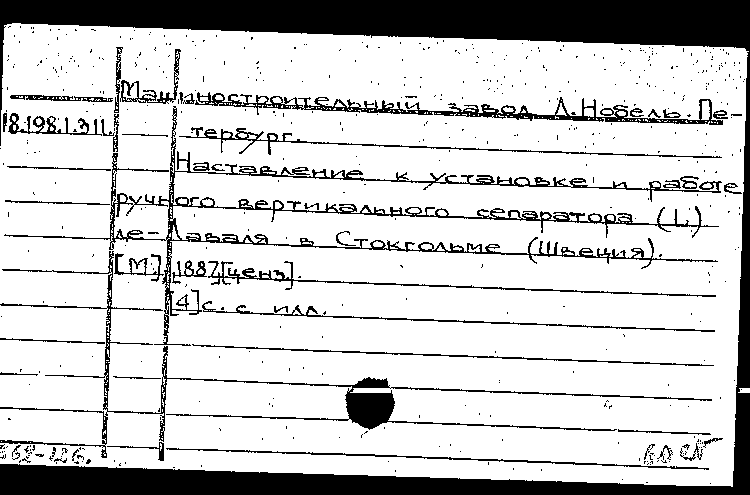 Машиностроительный завод Л.Нобель. Пе-
18.198.1.311. тербург.
Наставление к установке и работе
ручного вертикального сепаратора (L)
де-Лаваля в Стокгольме (Швеция).
[М], 1887[ценз].
[4]с. с илл.